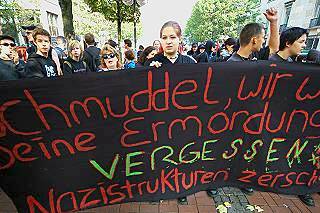 Schmuddel, wir w
Deine Ermordung
VERGESSEN
Nazistrukturen zersch